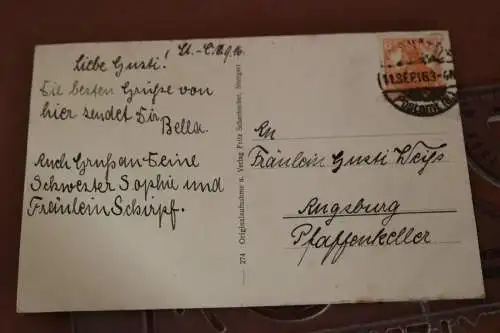 St.-C. 10.9.16
Liebe Gusti!
Die besten Grüße von
hier sendet Dir
Bella.
Auch Gruß an Deine
Schwester Sophie und
Fräulein Schirpf.
274 Originalaufnahme u. Verlag Fritz Schumacher, Stuttgart
11.SEP.16.3-4N.
An
Fräulein Gusti Weiß
Augsburg
Pfaffenkeller